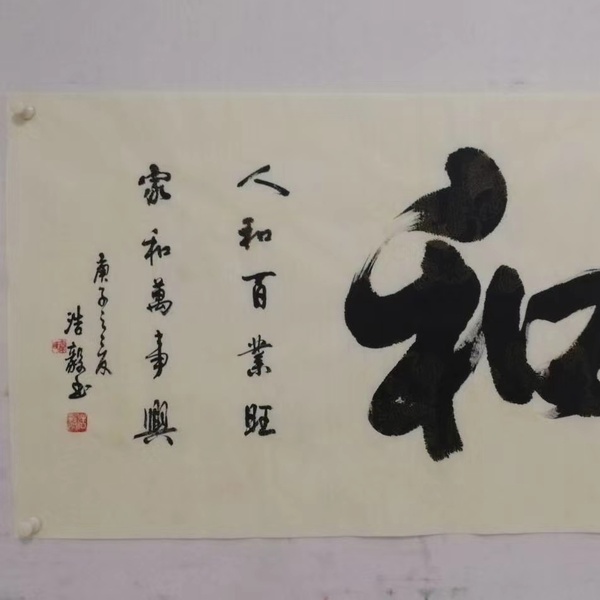 和
人和百業旺
家和萬事興
庚子之夏
浩毅书